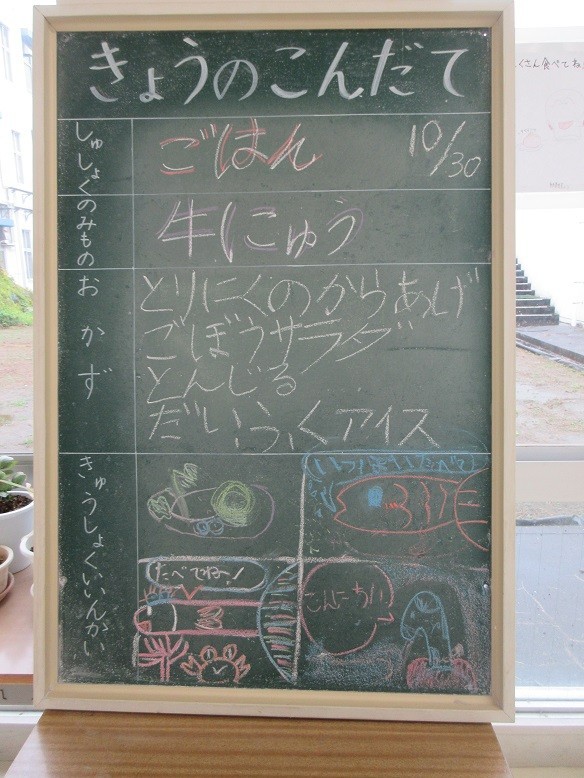 きょうのこんだて
しゅしょく
ごはん
10/30
のみもの
牛にゅう
おかず
とりにくのからあげ
ごぼうサラダ
とんじる
だいふくアイス
きゅうしょくいいんかい
たべてね!
こんにちは
くさん食べてね